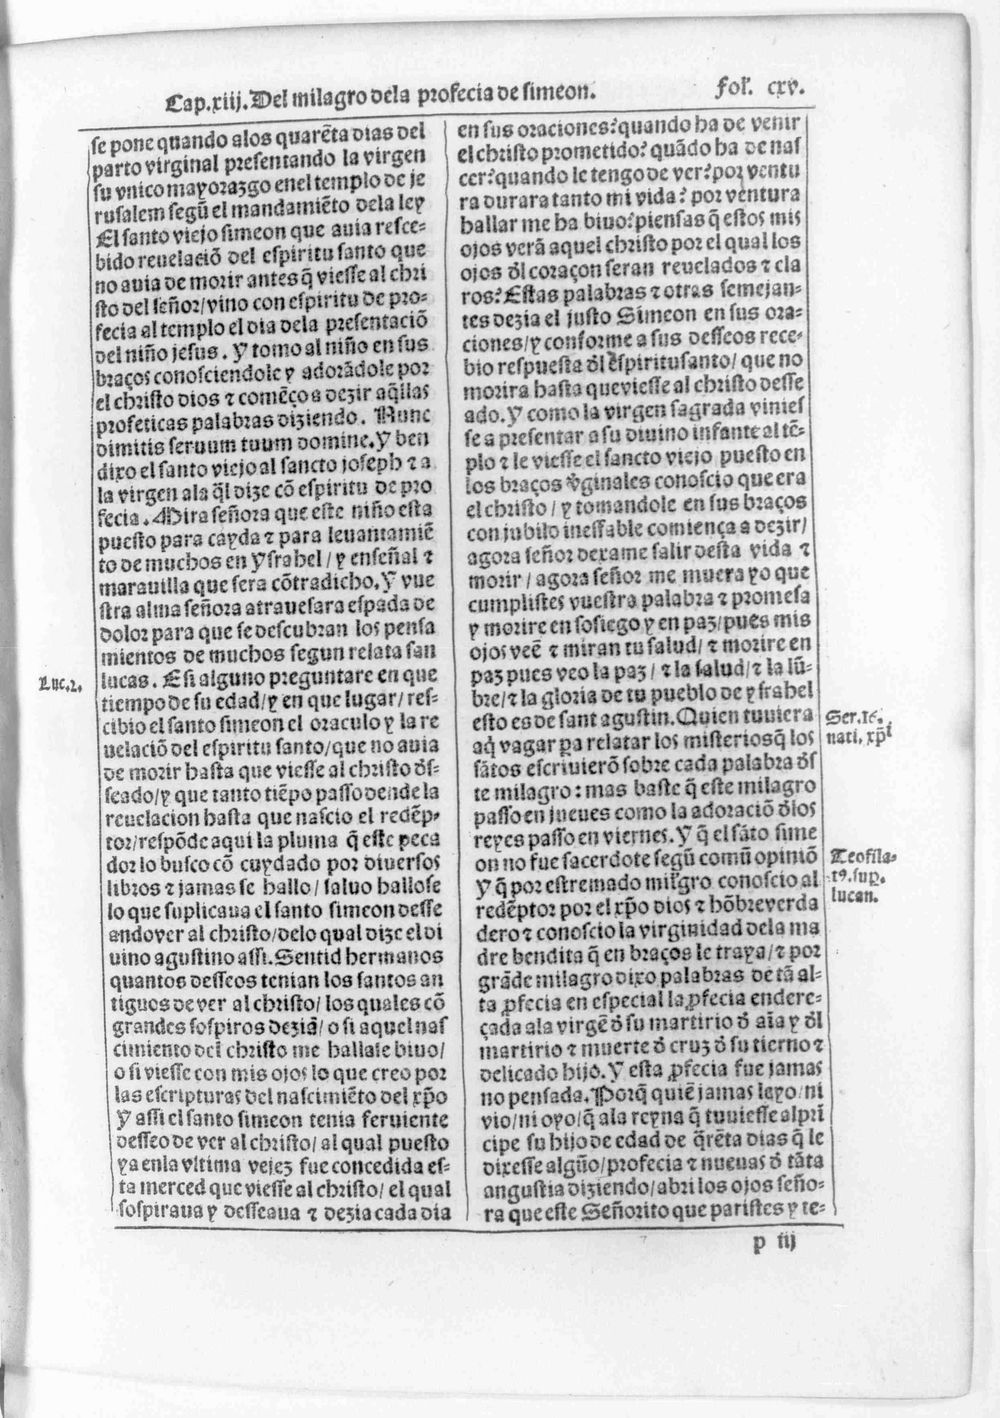 Cap.xiij. Del milagro dela profecia de simeon.
fol. cxv.
se pone quando alos quarẽta dias del
parto virginal presentando la virgen
su vnico mayorazgo enel templo de je
rusalem segũ el mandamiẽto dela ley
El santo viejo simeon que auia resce=
bido reuelaciõ del espiritu santo que
no auia de morir antes q̃ viesse al chri
sto del señor/vino con espiritu de pro=
fecia al templo el dia dela presentaciõ
del niño jesus. Y tomo al niño en sus
braços conosciendole y adorãdole por
el christo dios ⁊ comẽço a dezir aq̃llas
profeticas palabras diziendo. Nunc
dimitis seruum tuum domine. Y ben
dixo el santo viejo al sancto joseph ⁊ a
la virgen ala q̃l dize cõ espiritu de pro
fecia. Mira señora que este niño esta
puesto para cayda ⁊ para leuantamiẽ
to de muchos en Ysrahel/ y en señal ⁊
marauilla que sera cõtradicho. Y vue
stra alma señora atrauesara espada de
dolor para que se descubran los pensa
mientos de muchos segun relata san
lucas. E si alguno preguntare en que
tiempo de su edad/y en que lugar/res=
cibio el santo simeon el oraculo y la re
uelaciõ del espiritu santo/que no auia
de morir hasta que viesse al christo d̃s=
seado/y que tanto tiẽpo passo dende la
reuelacion hasta que nascio el redẽp=
tor/respõde aqui la pluma q̃ este peca
dor lo busco cõ cuydado por diuersos
libros ⁊ jamas se hallo/ saluo hallose
lo que suplicaua el santo simeon desse
ando ver al christo/ delo qual dize el di
uino agustino assi. Sentid hermanos
quantos desseos tenian los santos an
tiguos de ver al christo/ los quales cõ
grandes sospiros deziã/ o si aquel nas
cimiento del christo me hallase biuo/
o si viesse con mis ojos lo que creo por
las escripturas del nascimiẽto del xp̃o
Y assi el santo simeon tenia feruiente
desseo de ver al christo/ al qual puesto
ya enla vltima vejez fue concedida es=
ta merced que viesse al christo/ el qual
sospiraua y desseaua ⁊ dezia cada dia
Luc.2.
en sus oraciones: quando ha de venir
el christo prometido? quãdo ha de nas
cer? quando le tengo de ver? por ventu
ra durara tanto mi vida? por ventura
hallar me ha biuo? piensas q̃ estos mis
ojos verã aquel christo por el qual los
ojos d̃l coraçon seran reuelados ⁊ cla
ros? Estas palabras ⁊ otras semejan=
tes dezia el justo Simeon en sus ora=
ciones/y conforme a sus desseos rece=
bio respuesta d̃l espiritusanto/ que no
morira hasta que viesse al christo desse
ado. Y como la virgen sagrada vinies
se a presentar a su diuino infante al tẽ=
plo ⁊ le viesse el sancto viejo puesto en
los braços ṽginales conoscio que era
el christo/ y tomandole en sus braços
con jubilo ineffable comiença a dezir/
agora señor dexame salir desta vida ⁊
morir/ agora señor me muera yo que
cumplistes vuestra palabra ⁊ promesa
y morire en sosiego y en paz/pues mis
ojos veẽ ⁊ miran tu salud/ ⁊ morire en
paz pues veo la paz/ ⁊ la salud/⁊ la lũ=
bre/⁊ la gloria de tu pueblo de ysrahel
esto es de sant agustin. Quien tuuiera
aq̃ vagar para relatar los misterios q̃ los
sãtos escriuierõ sobre cada palabra d̃s
te milagro: mas baste q̃ este milagro
passo en jueues como la adoraciõ d̃los
reyes passo en viernes. Y q̃ el sãto sime
on no fue sacerdote segũ comũ opiniõ
Y q̃ por estremado mil̃gro conoscio al
redẽptor por el xp̃o dios ⁊ hõbre verda
dero ⁊ conoscio la virginidad dela ma
dre bendita q̃ en braços le traya/ ⁊ por
grãde milagro dixo palabras de tã al=
ta ꝓfecia en especial la ꝓfecia endere=
çada ala virgẽ d̃ su martirio d̃ aĩa y d̃l
martirio ⁊ muerte d̃ cruz d̃ su tierno ⁊
delicado hijo. Y esta ꝓfecia fue jamas
no pensada. Porq̃ quiẽ jamas leyo/ni
vio/ni oyo/q̃ ala reyna q̃ tuuiesse al prĩ
cipe su hijo de edad de q̃rẽta dias q̃ le
dixesse algũo/profecia ⁊ nueuas d̃ tãta
angustia diziendo/abri los ojos seño=
ra que este Señorito que paristes y te=
Ser.16.
nati. xp̃i
Teofila=
t9. sup.
lucan.
p iij